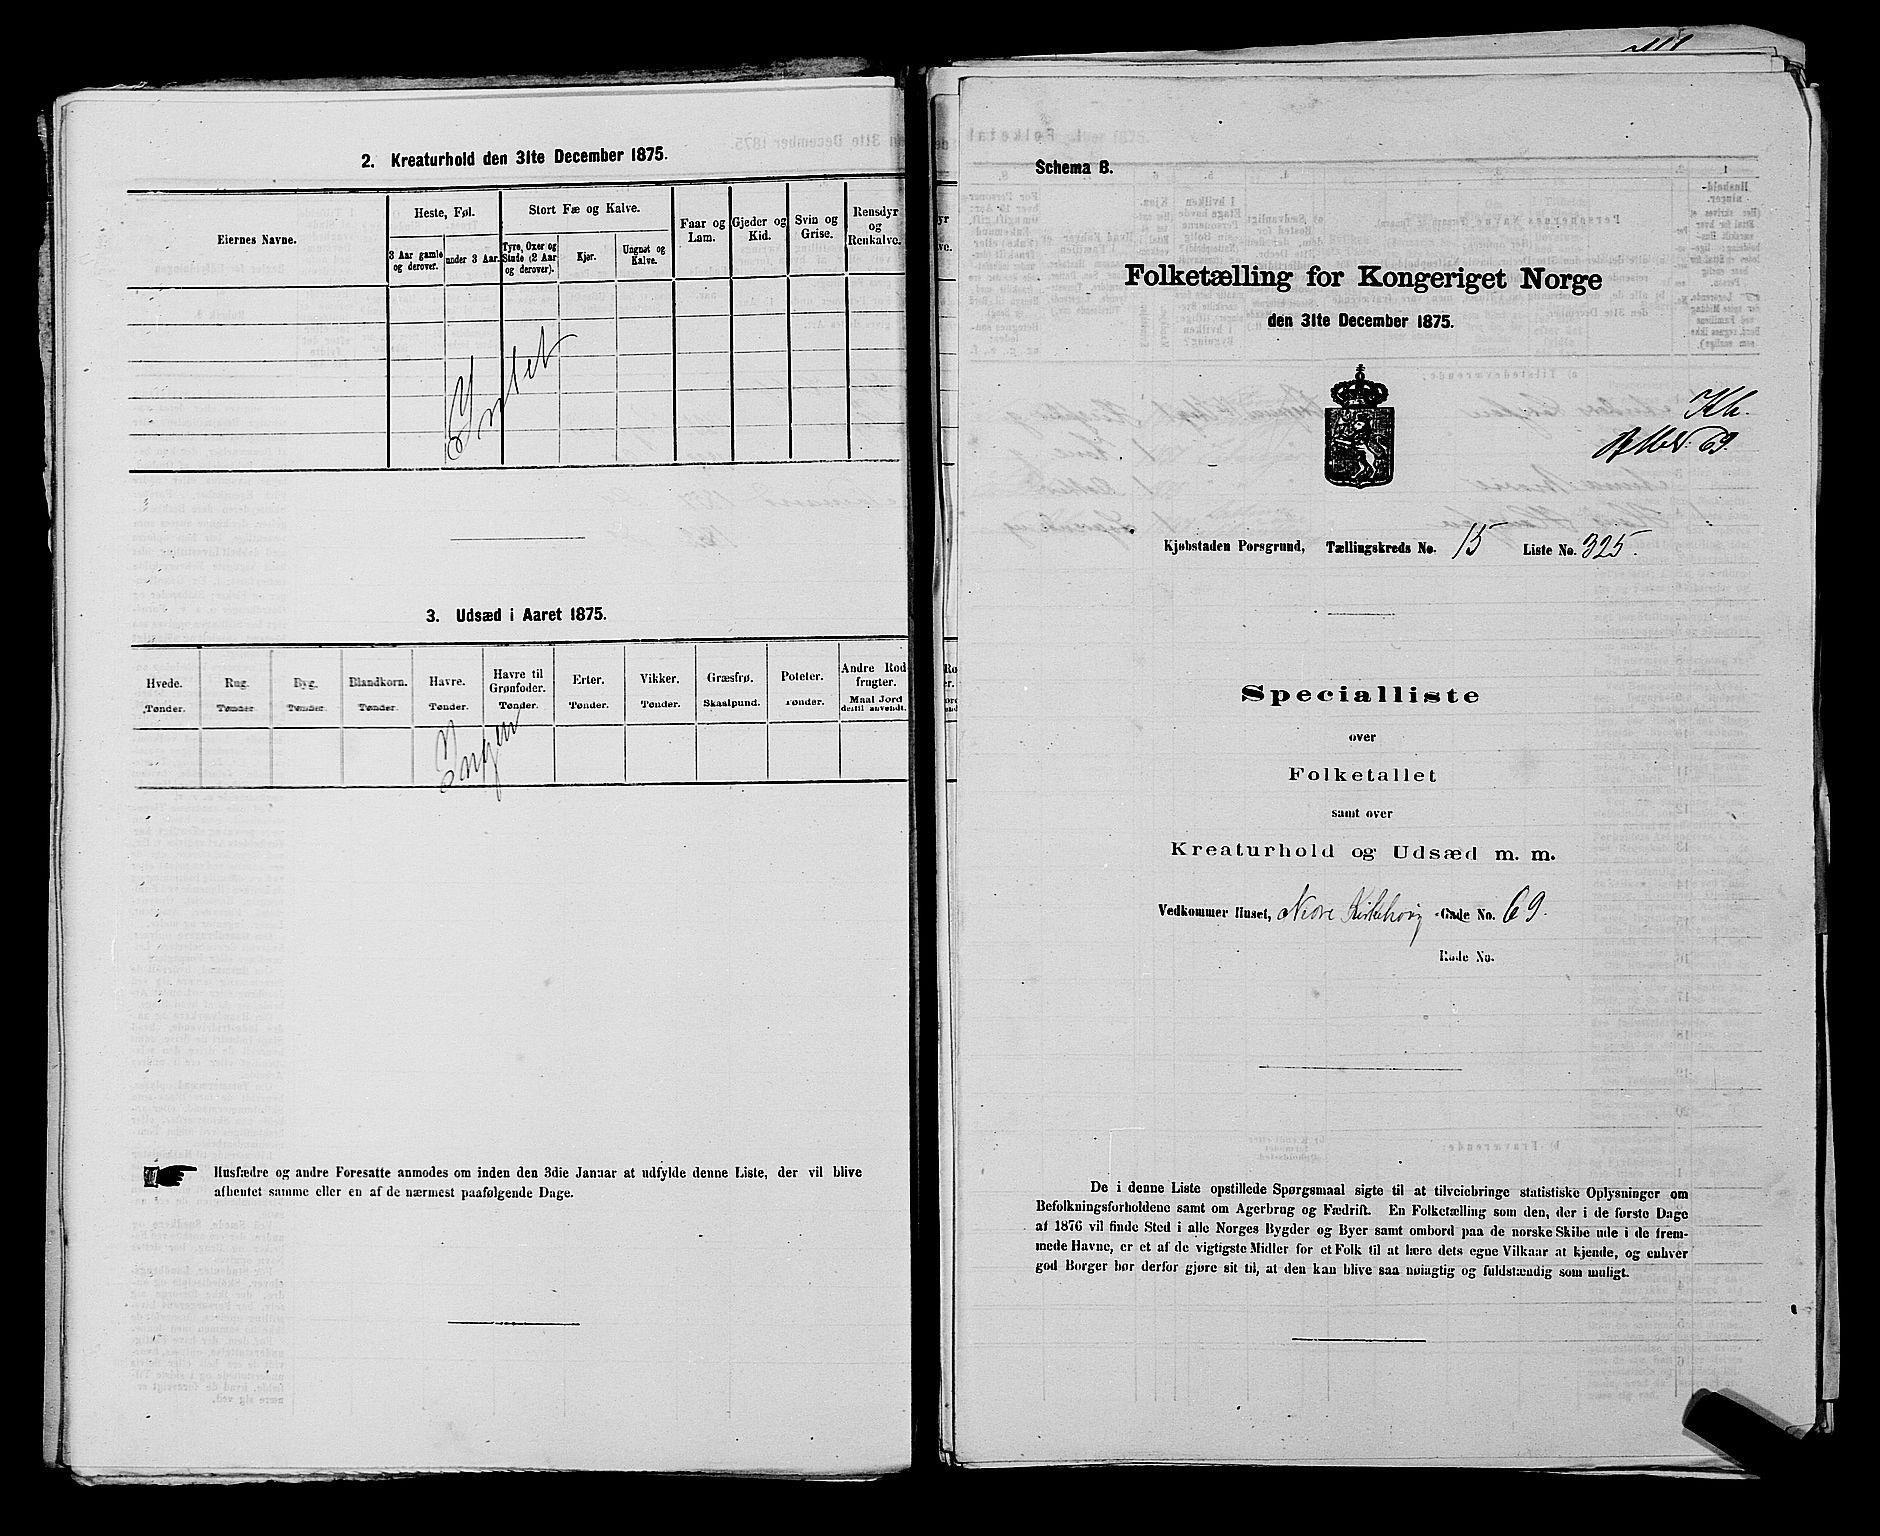 2. Kreaturhold den 31te December 1875.
Eiernes Navne.
Heste, Føl.
3 Aar gamle og derover.
under 3 Aar.
Stort Fæ og Kalve.
Tyre, Oxer og Stude (2 Aar og derover).
Kjør.
Ungnøt og Kalve.
Faar og Lam.
Gjeder og Kid.
Svin og Grise.
Rensdyr og Renkalve.
Intet
3. Udsæd i Aaret 1875.
Hvede. Rug. Byg. Blandkorn. Havre. Havre til Grønfoder. Erter. Vikker. Græsfrø. Poteter. Andre Rodfrugter.
Tønder. Tønder. Tønder. Tønder. Tønder. Tønder. Tønder. Tønder. Skaalpund. Tønder. Maal Jord dertil anvendt.
Ingen
Husfædre og andre Foresatte anmodes om inden den 3die Januar at udfylde denne Liste, der vil blive
afhentet samme eller en af de nærmest paafølgende Dage.
Schema B.
Folketælling for Kongeriget Norge
den 31te December 1875.
69.
Kjøbstaden Porsgrund, Tællingskreds No. 15 Liste No. 325.
Specialliste
over
Folketallet
samt over
Kreaturhold og Udsæd m. m.
Vedkommer Huset, Nedre Kirkehoug -Gade No. 69.
Rode No.
De i denne Liste opstillede Spørgsmaal sigte til at tilveiebringe statistiske Oplysninger om
Befolkningsforholdene samt om Agerbrug og Fædrift. En Folketælling som den, der i de første Dage
af 1876 vil finde Sted i alle Norges Bygder og Byer samt ombord paa de norske Skibe ude i de frem-
mede Havne, er et af de vigtigste Midler for et Folk til at lære dets egne Vilkaar at kjende, og enhver
god Borger bør derfor gjøre sit til, at den kan blive saa nøiagtig og fuldstændig som muligt.